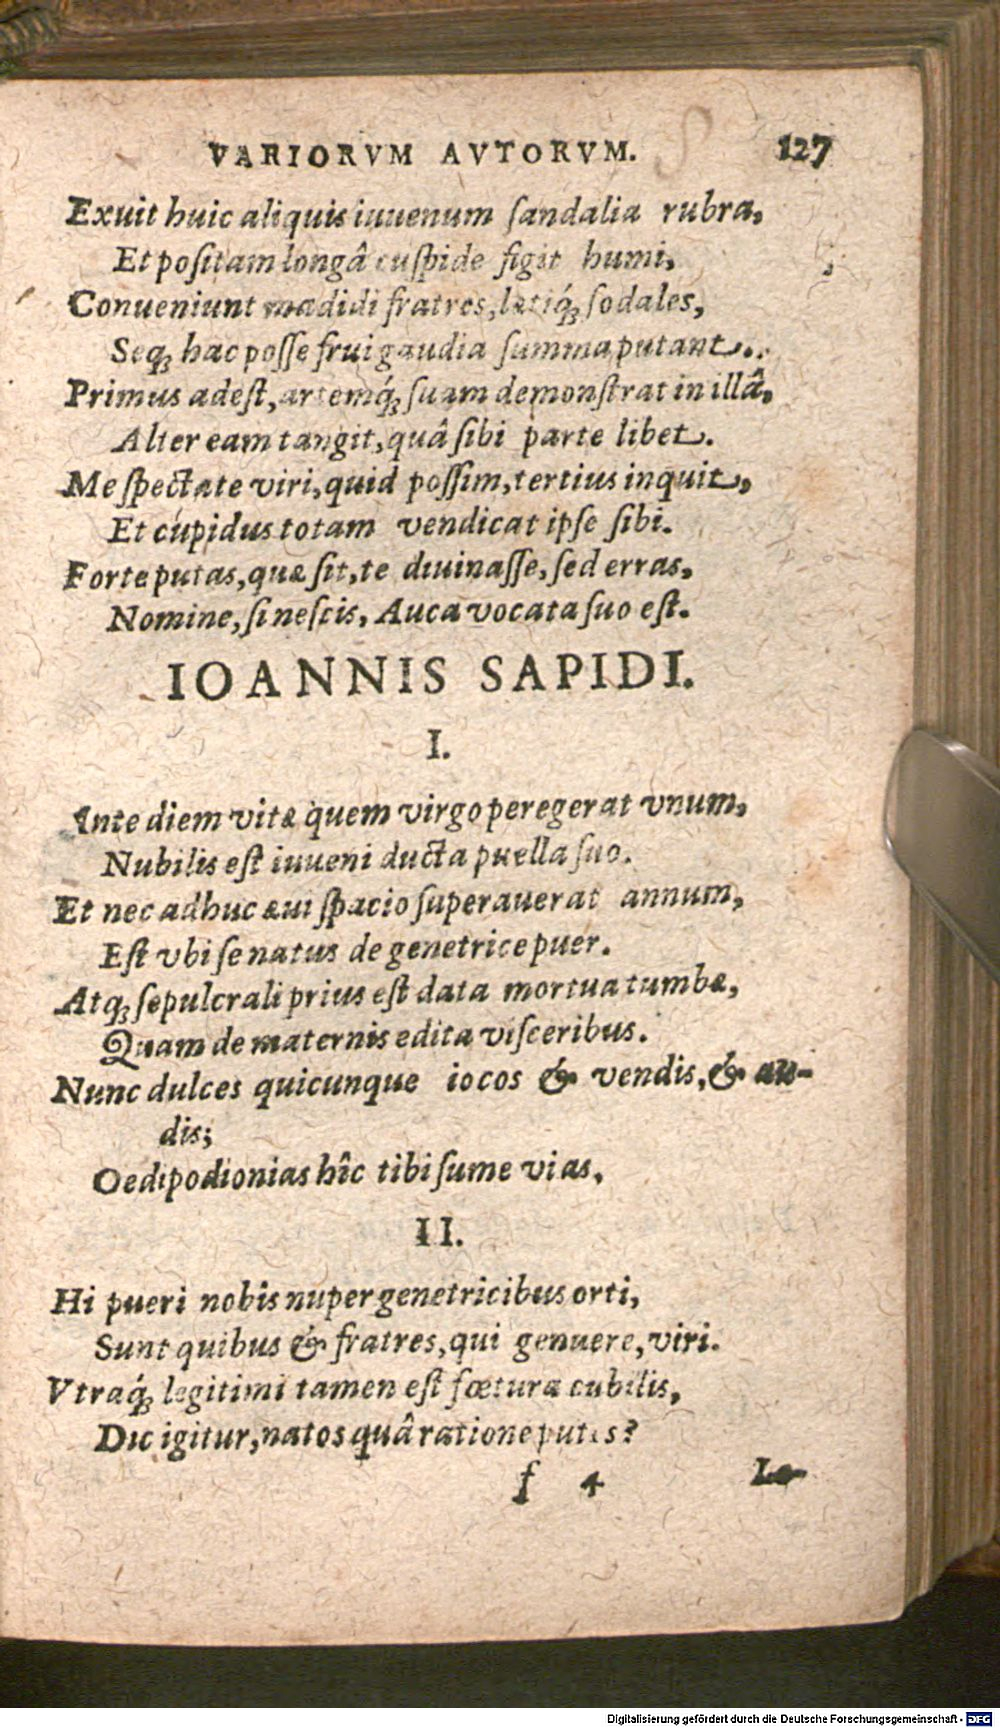 VARIORVM AVTORVM. 127
Exuit huic aliquis iuuenum ſandalia rubra,
Et poſitam longâ cuſpide figit humi,
Conueniunt madidi fratres, lætiq́ꝫ ſodales,
Seqꝫ hac poſſe frui gaudia ſumma putant.
Primus adeſt, artemq́ꝫ ſuam demonſtrat in illâ,
Alter eam tangit, quâ ſibi parte libet.
Me ſpectate viri, quid poſſim, tertius inquit,
Et cupidus totam vendicat ipſe ſibi.
Forte putas, quæ ſit, te diuinaſſe, ſed erras,
Nomine, ſi neſcis, Auca vocata ſuo eſt.
IOANNIS SAPIDI.
I.
Ante diem vitæ quem virgo peregerat vnum,
Nubilis eſt iuueni ducta puella ſuo.
Et nec adhuc æui ſpacio ſuperauerat annum,
Eſt vbi ſe natus de genetrice puer.
Atqꝫ ſepulcrali prius eſt data mortua tumbæ,
Quam de maternis edita viſceribus.
Nunc dulces quicunque iocos & vendis, & au-
dis;
Oedipodionias hîc tibi ſume vias,
II.
Hi pueri nobis nuper genetricibus orti,
Sunt quibus & fratres, qui genuere, viri.
Vtraq́ꝫ legitimi tamen eſt fœtura cubilis,
Dic igitur, natos quâ ratione putes?
f 4 Le-
Digitalisierung gefördert durch die Deutsche Forschungsgemeinschaft - DFG